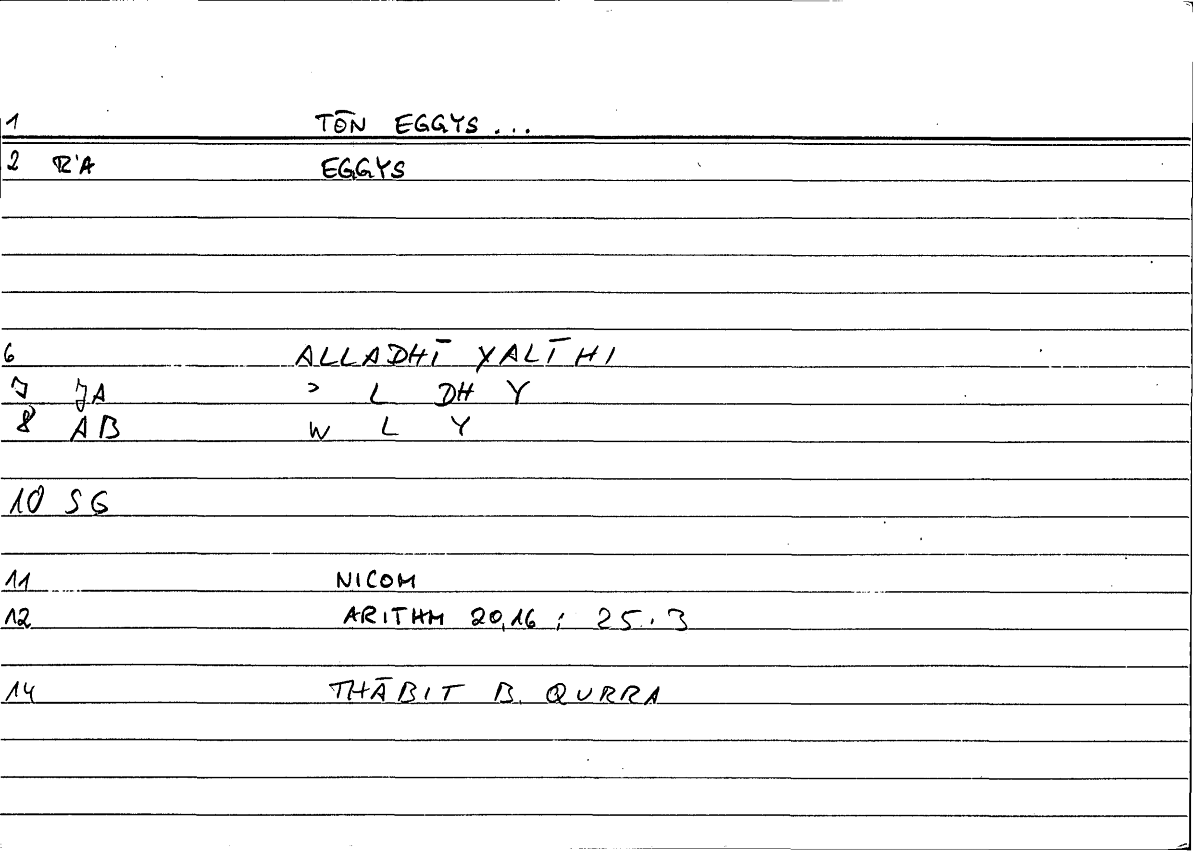 1 TŌN EGGYS ...
2 R'A EGGYS
6 ALLADHĪ YALĪHI
7 JA > L DH Y
8 AB W L Y
10 SG
11 NICOM
12 ARITHM 20,16 ; 25.3
14 THĀBIT B. QURRA